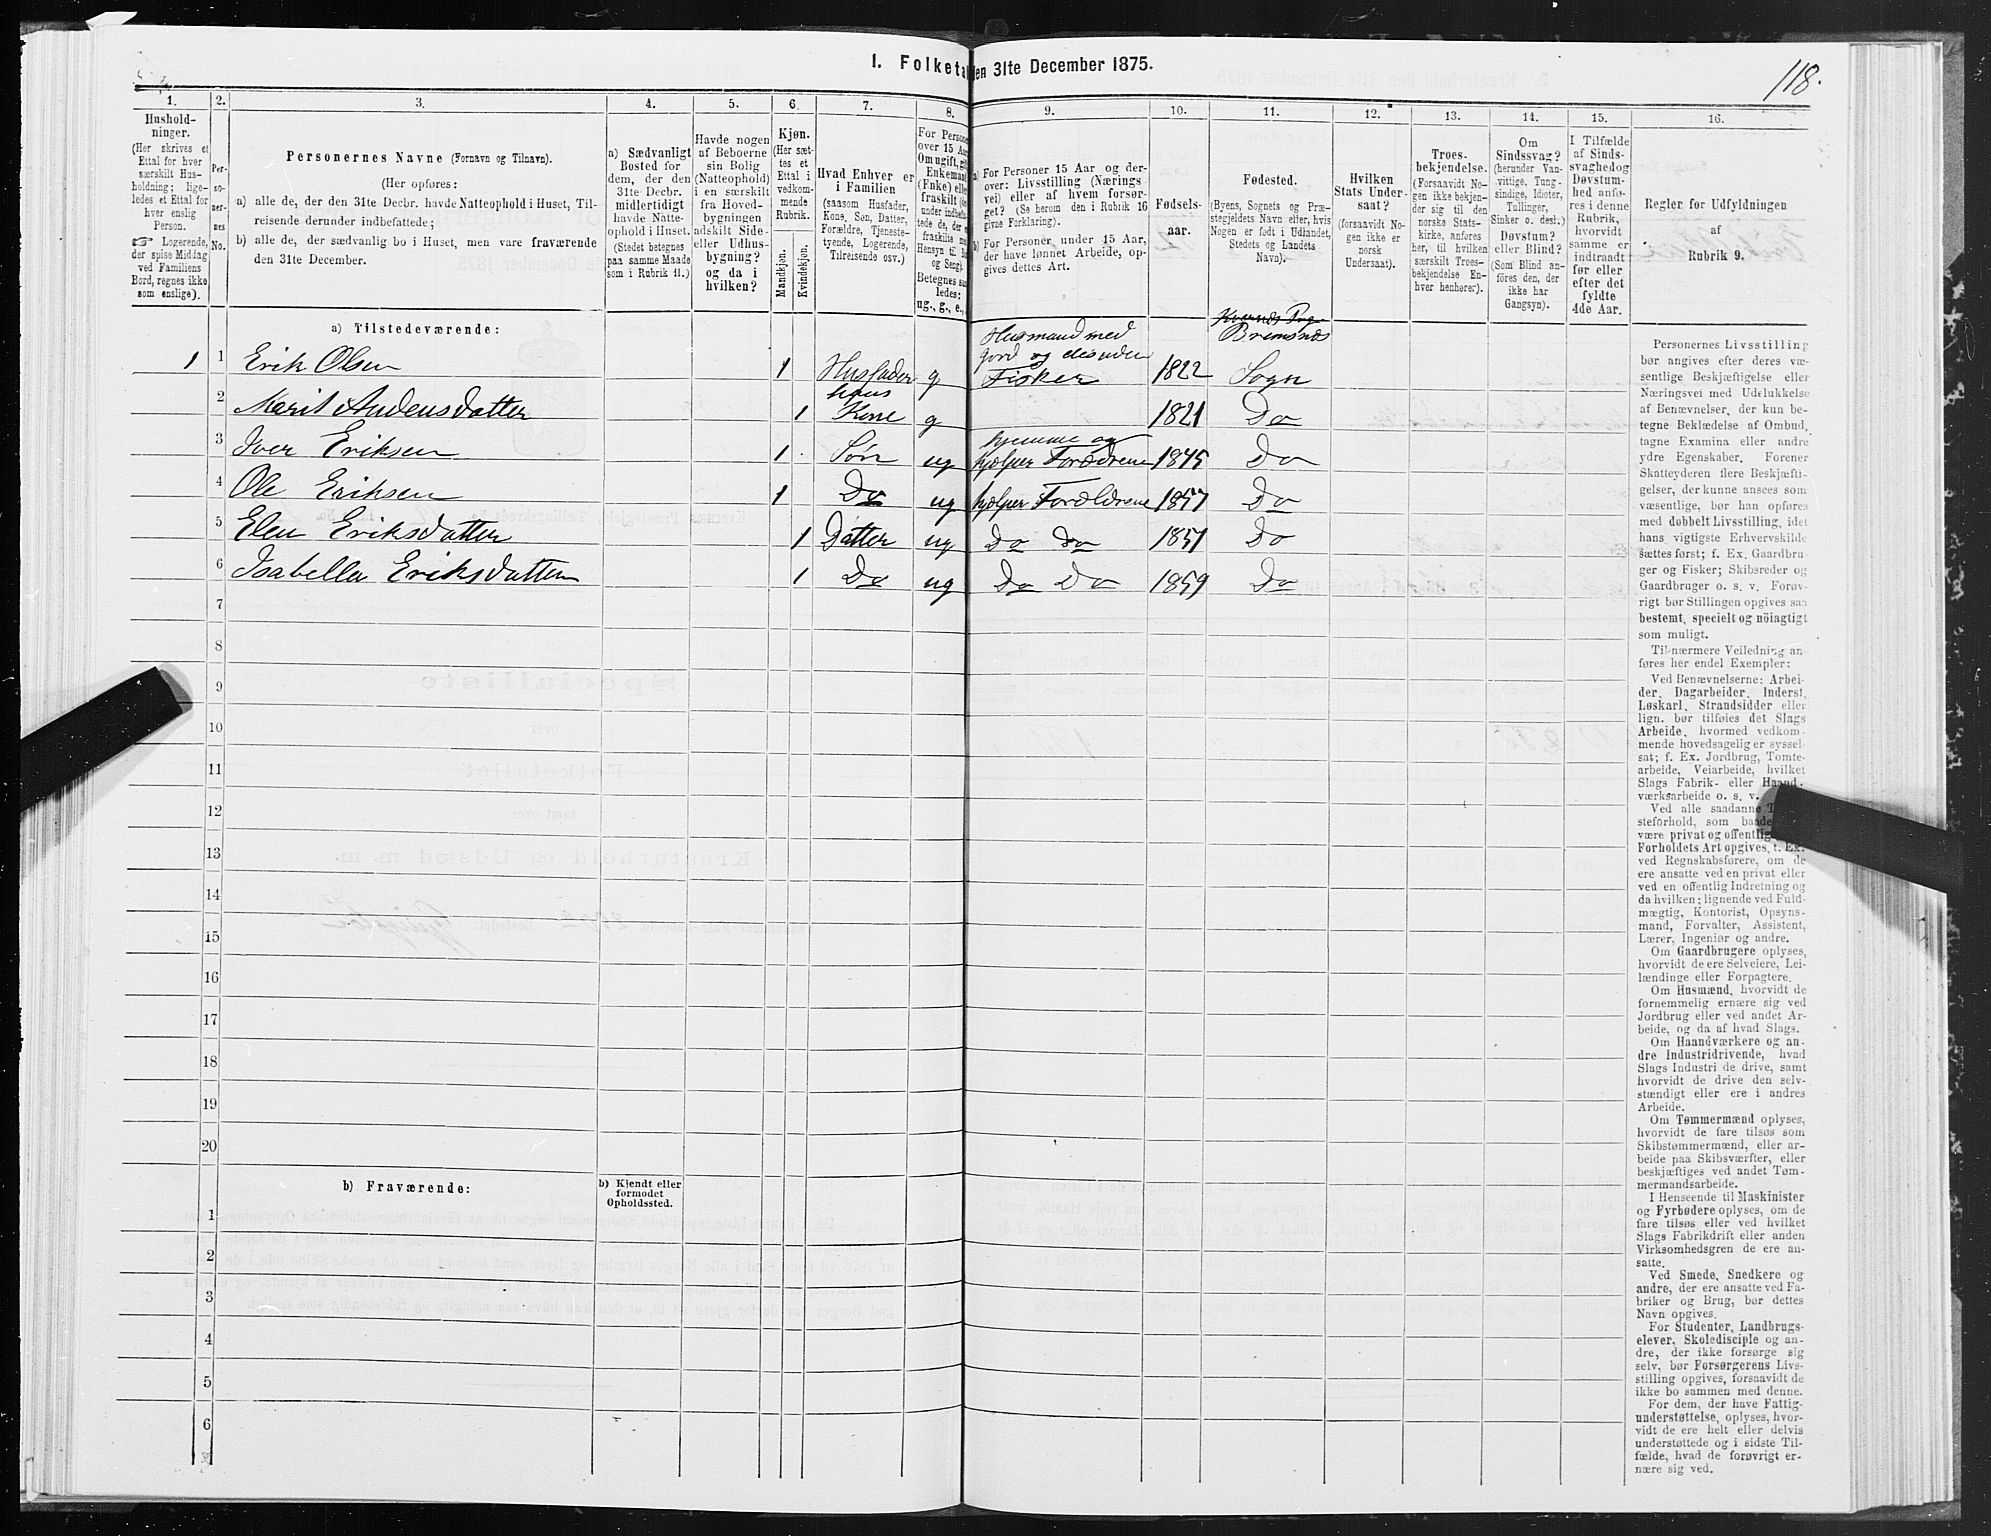 1. Folketal den 31te December 1875.
118.
1.
2.
3.
4.
5.
6.
7.
8.
9.
10.
11.
12.
13.
14.
15.
16.
Hushold-
ninger.
(Her skrives et
Ettal for hver
særskilt Hus-
holdning; lige-
ledes et Ettal for
hver enslig
Person.
Logerende,
der spise Middag
ved Familiens
Bord, regnes ikke
som enslige).
Per-
so-
ner-
nes
No.
Personernes Navne (Fornavn og Tilnavn).
(Her opføres:
a) alle de, der den 31te Decbr. havde Natteophold i Huset, Til-
reisende derunder indbefattede;
b) alle de, der sædvanlig bo i Huset, men vare fraværende
den 31te December.
a) Sædvanligt
Bosted for
dem, der den
31te Decbr.
midlertidigt
havde Natte-
ophold i Huset.
(Stedet betegnes
paa samme Maade
som i Rubrik 11.)
Havde nogen
af Beboerne
sin Bolig
(Natteophold)
i en særskilt
fra Hoved-
bygningen
adskilt Side-
eller Udhus-
bygning?
og da i
hvilken?
Kjøn.
(Her sæt-
tes et
Ettal i
vedkom-
mende
Rubrik.
Mandkjøn.
Kvindekjøn.
Hvad Enhver er
i Familien
(saasom Husfader,
Kone, Søn, Datter,
Forældre, Tjeneste-
tyende, Logerende,
Tilreisende osv.)
For Persone
over 15 Aar
Om ugift, gif
Enkemand
(Enke) elle
fraskilt
Betegnes saa
ledes:
ug., g., e.,
a) For Personer 15 Aar og der-
over: Livsstilling (Nærings
vei) eller af hvem forsør-
get? (Se herom den i Rubrik 16
givne Forklaring).
b) For Personer under 15 Aar,
der have lønnet Arbeide, op-
gives dettes Art.
Fødsels-
aar.
Fødested.
(Byens, Sognets og Præ-
stegjeldets Navn eller, hvis
Nogen er født i Udlandet,
Stedets og Landets
Navn).
Hvilken
Stats Under-
saat?
(forsaavidt No-
gen ikke er
norsk
Undersaat).
Troes-
bekjendelse.
(Forsaavidt No-
gen ikke bekjen-
der sig til den
norske Stats-
kirke, anføres
her, til hvilken
særskilt Troes-
bekjendelse En-
hver henhører).
Om
Sindssvag?
(herunder Van-
vittige, Tung-
sindige, Idioter,
Tullinger,
Sinker o. desl.)
Døvstum?
eller Blind?
(Som Blind an-
føres den, der
ikke har
Gangsyn).
I Tilfælde
af Sinds-
svaghed og
Døvstum-
hed anfø-
res i denne
Rubrik,
hvorvidt
samme er
indtraadt
før eller
efter det
fyldte
4de Aar.
Regler for Udfyldningen
af
Rubrik 9.
a) Tilstedeværende:
1 1 Erik Olsen 1 Husfader g Husmand med
Jord og desuden
Fisker 1822 Bremsnæs
Sogn
2 Marit Andersdatter 1 hans
Kone g 1821 Do
3 Iver Eriksen 1 Søn ug hjemme og
hjelper Forældrene 1845 Do
4 Ole Eriksen 1 Do ug hjelper Forældrene 1857 Do
5 Elen Eriksdatter 1 Datter ug Do Do 1851 Do
6 Isabella Eriksdatter 1 Do ug Do Do 1859 Do
7
8
9
10
11
12
13
14
15
16
17
18
19
20
b) Fraværende:
b) Kjendt eller
formodet
Opholdssted.
1
2
3
4
5
6
Personernes Livsstilling
bør angives efter deres væ-
sentlige Beskjæftigelse eller
Næringsvei med Udelukkelse
af Benævnelser, der kun be-
tegne Beklædelse af Ombud,
tagne Examina eller andre
ydre Egenskaber. Forener
Skatteyderen flere Beskjæfti-
gelser, der kunne ansees som
væsentlige, bør han opføres
med dobbelt Livsstilling, idet
hans vigtigste Erhvervskilde
sættes først; f. Ex. Gaardbru-
ger og Fisker; Skibsreder og
Gaardbruger o. s. v. Forøv-
rigt bør Stillingen opgives saa
bestemt, specielt og nöiagtigt
som muligt.
Til nærmere Veiledning an-
føres her endel Exempler:
Ved Benævnelserne: Arbei-
der, Dagarbeider, Inderst,
Løskarl, Strandsidder eller
lign. bør tilføies det Slags
Arbeide, hvormed vedkom-
mende hovedsagelig er syssel-
sat; f. Ex. Jordbrug, Tomte-
arbeide, Veiarbeide, hvilket
Slags Fabrik- eller Haand-
værksarbeide o. s. v.
Ved alle saadanne
steforhold, som baade
være privat og offentlig,
Forholdets Art opgives, f. Ex.
ved Regnskabsførere, om de
ere ansatte ved en privat eller
ved en offentlig Indretning og
da hvilken; lignende ved Fuld-
mægtig, Kontorist, Opsyns-
mand, Forvalter, Assistent,
Lærer, Ingeniør og andre.
Om Gaardbrugere oplyses,
hvorvidt de ere Selveiere, Lei-
lændinge eller Forpagtere.
Om Husmænd, hvorvidt de
fornemmelig ernære sig ved
Jordbrug eller ved andet Ar-
beide, og da af hvad Slags.
Om Haandværkere og an-
dre Industridrivende, hvad
Slags Industri de drive, samt
hvorvidt de drive den selv-
stændigt eller ere i andres
Arbeide.
Om Tømmermænd oplyses,
hvorvidt de fare tilsøs som
Skibstømmermænd, eller ar-
beide paa Skibsværfter, eller
beskjæftiges ved andet Tøm-
mermandsarbeide.
I Henseende til Maskinister
og Fyrbødere oplyses, om de
fare tilsøs eller ved hvilket
Slags Fabrikdrift eller anden
Virksomhedsgren de ere an-
satte.
Ved Smede, Snedkere og
andre, der ere ansatte ved Fa-
briker og Brug, bør dettes
Navn opgives.
For Studenter, Landbrugs-
elever, Skoledisciple og an-
dre, der ikke forsørge sig
selv, bør Forsørgerens Livs-
stilling opgives, forsaavidt de
ikke bo sammen med denne.
For dem, der have Fattig-
understøttelse, oplyses, hvor-
vidt de ere helt eller delvis
understøttede og i sidste Til-
fælde, hvad de forøvrigt er-
nære sig ved.